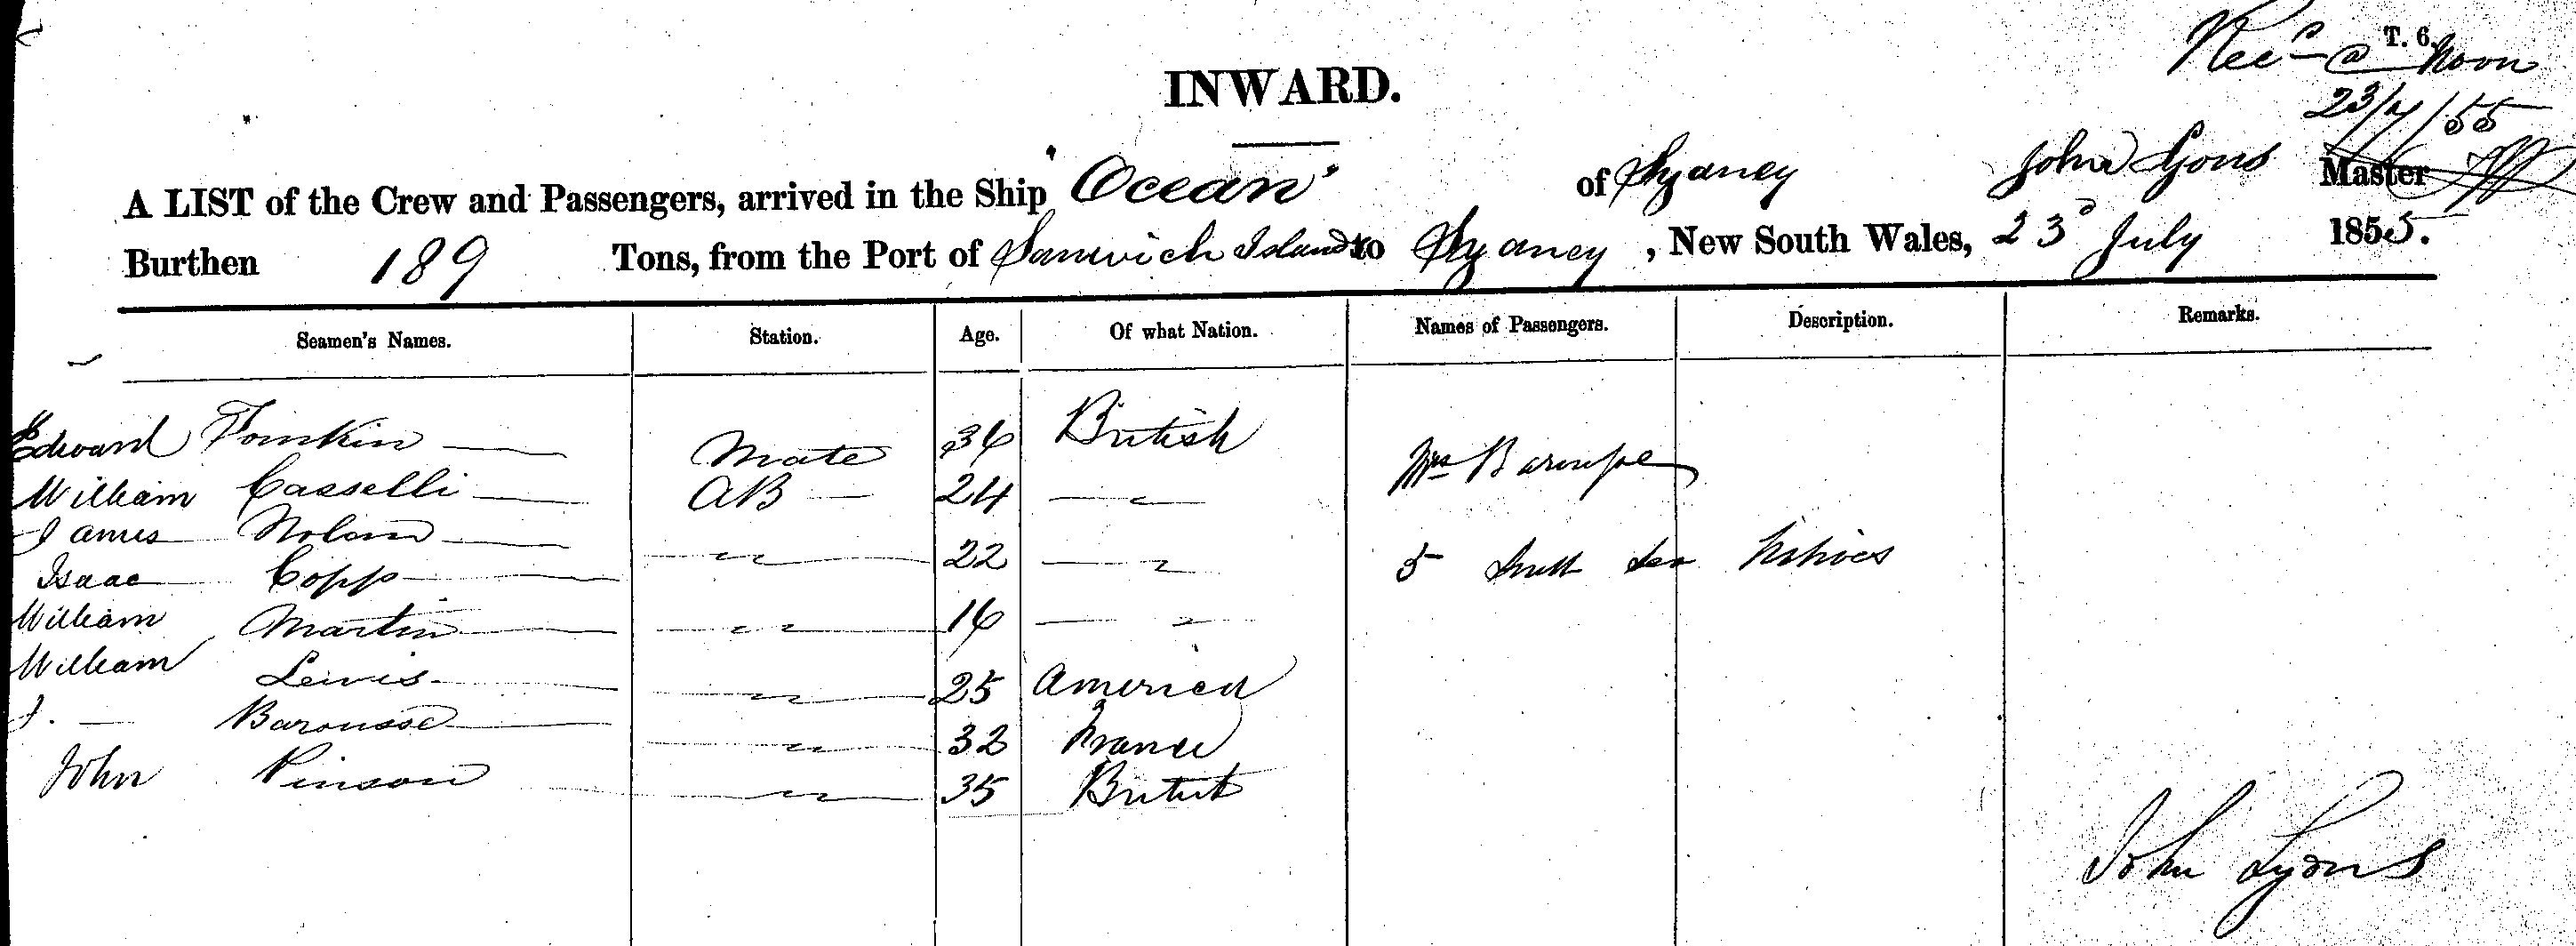 T. 6.
Recd @ Noon
23/7/55
INWARD.
A LIST of the Crew and Passengers, arrived in the Ship "Ocean" of Sydney John Lyons Master
Burthen 189 Tons, from the Port of Sanwich Islands to Sydney, New South Wales, 23d July 1855.
Seamen's Names. Station. Age. Of what Nation. Names of Passengers. Description. Remarks.
Edward Tomkin Mate 36 British
William Casselli AB 24 — " Mrs
James Nolan " 22 — " 5 South Sea Natives
Isaac Copp
William Martin " 16 — "
William Lewis " 25 America
J. — Barousse " 32 France
John Pinson " 35 British
John Lyons